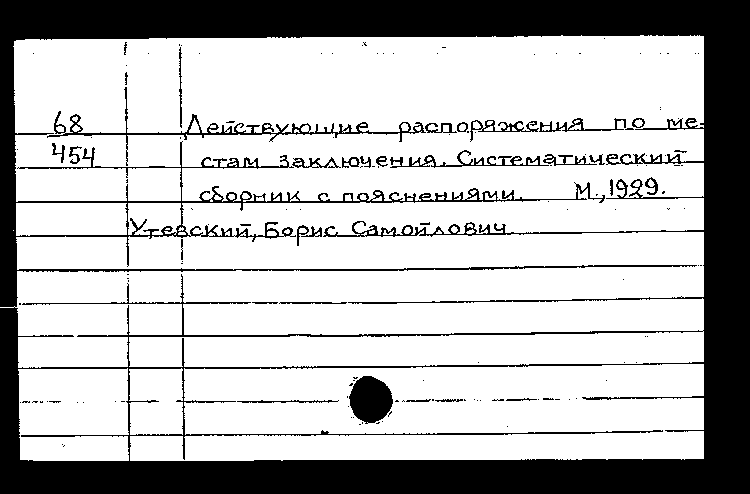 68 Действующие распоряжения по ме-
454 стам заключения. Систематический
сборник с пояснениями. М., 1929.
Утевский, Борис Самойлович